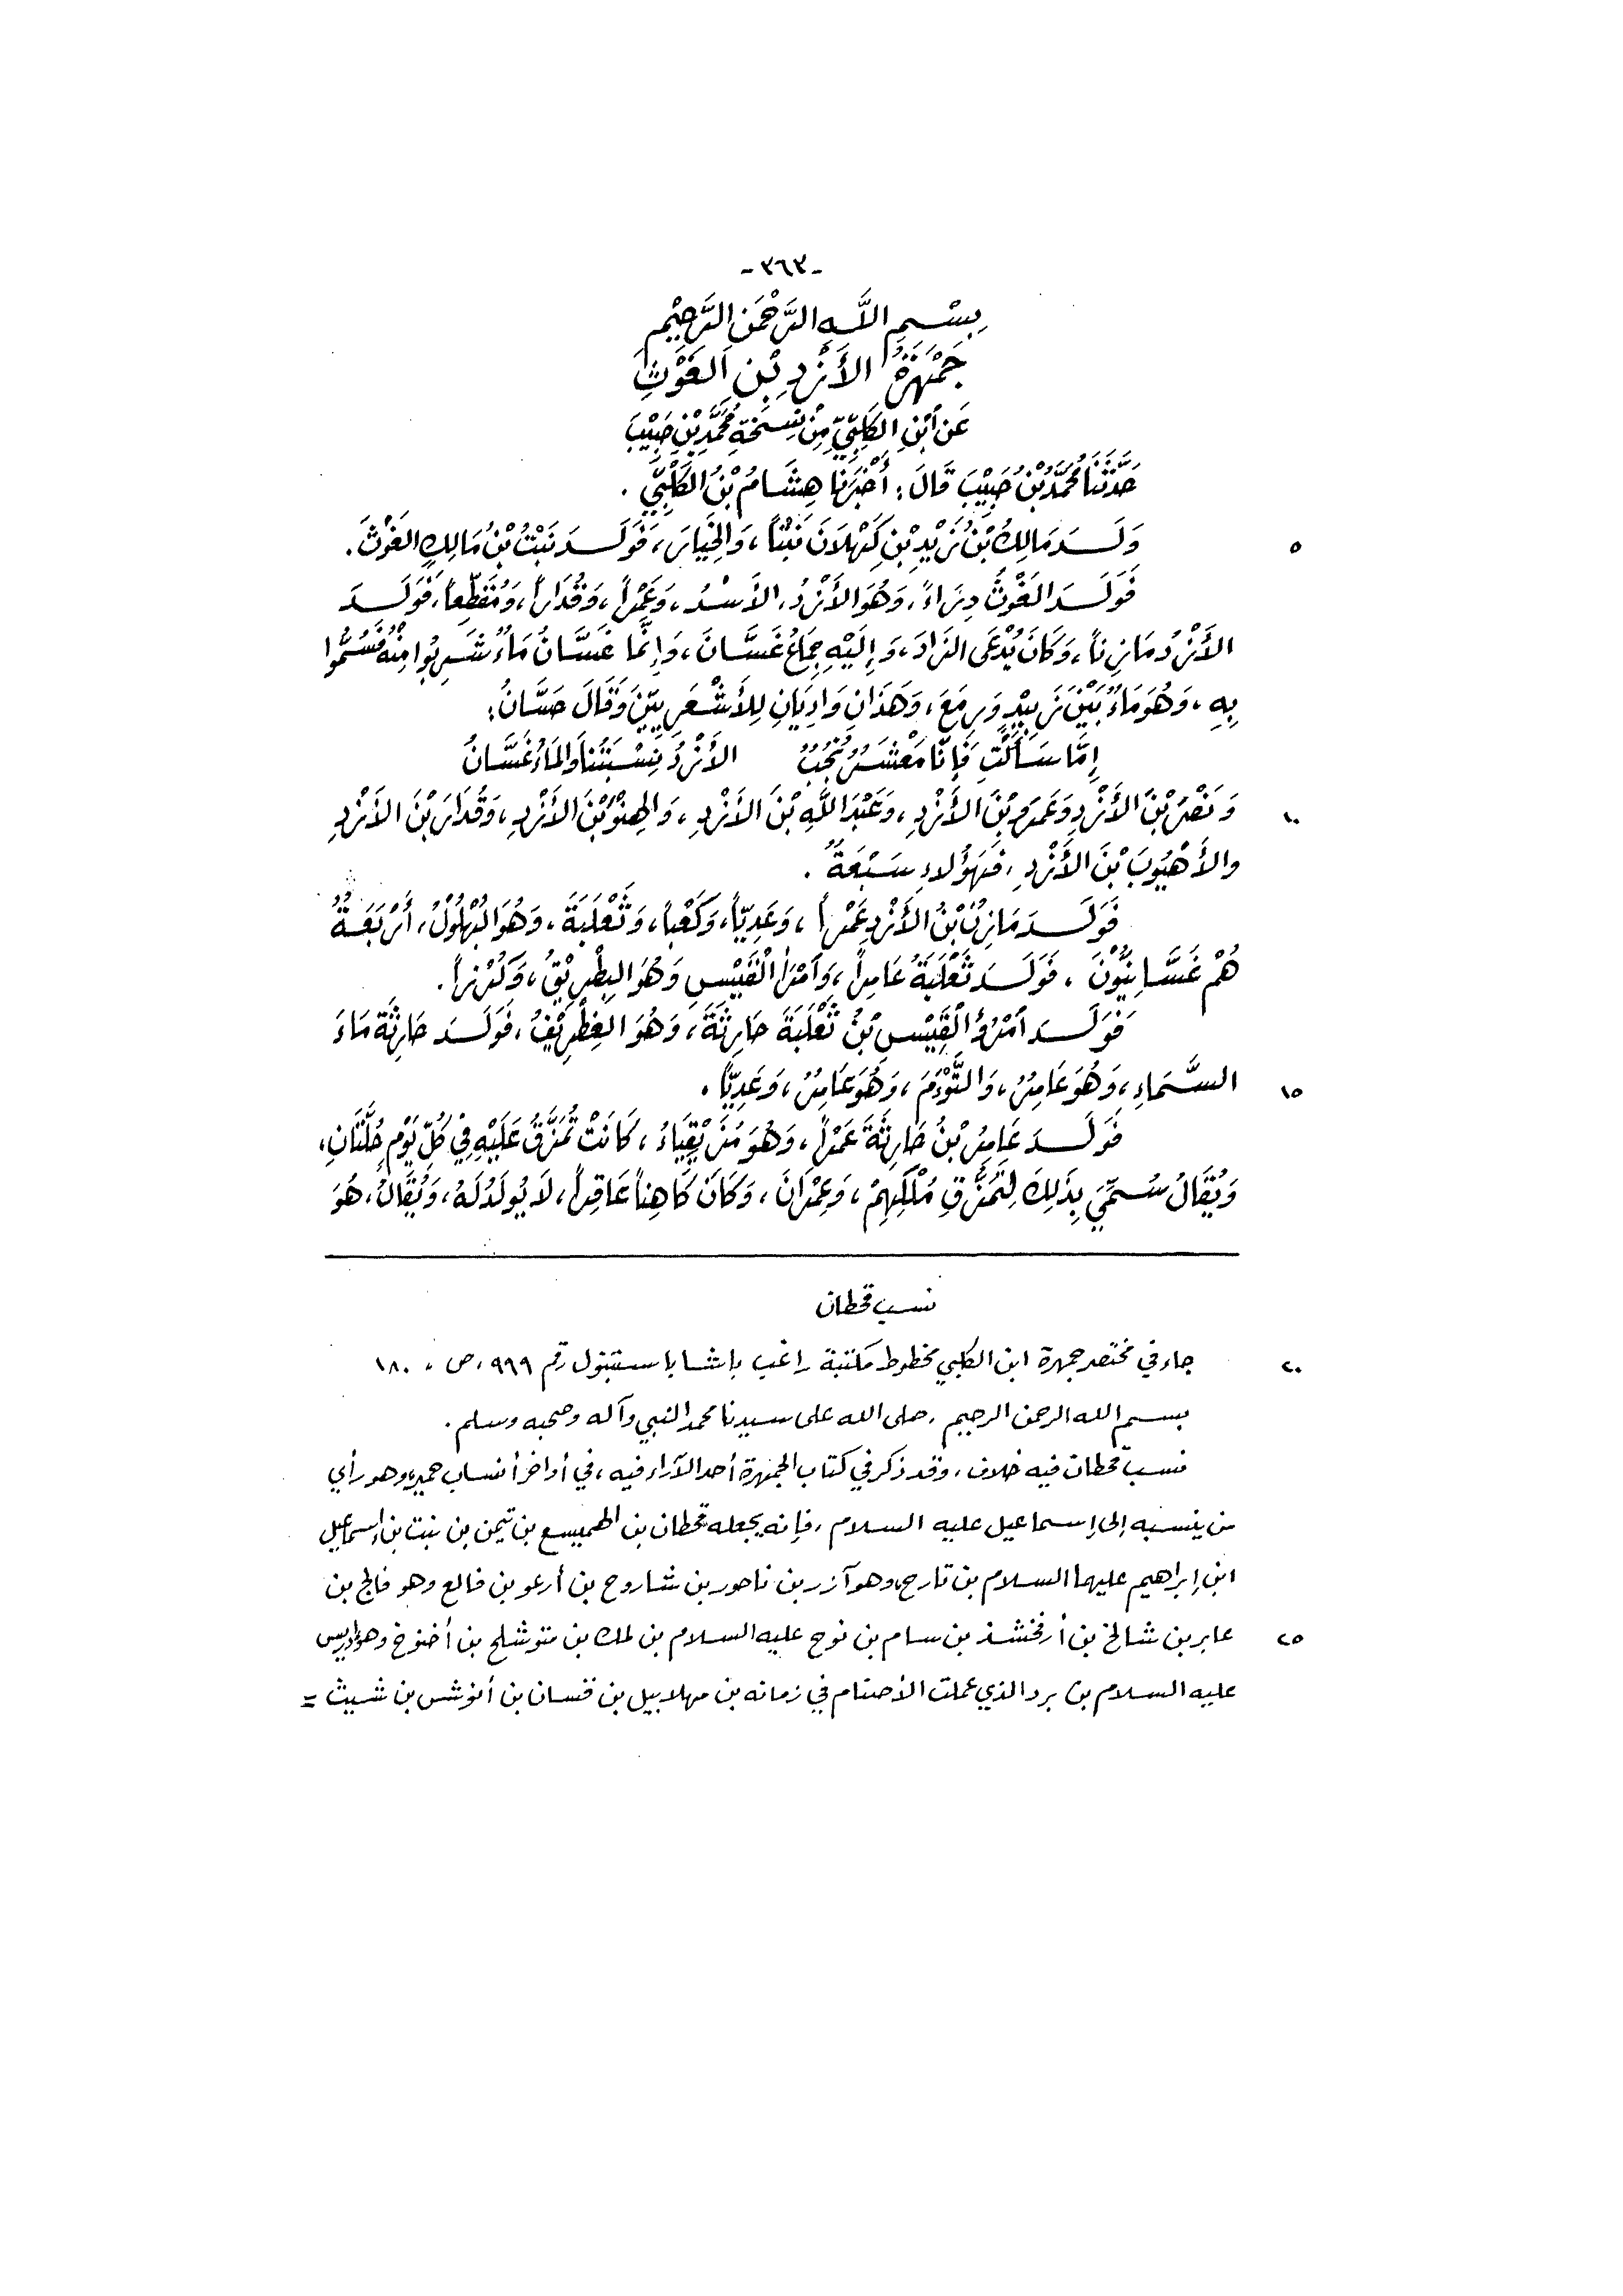 -٣٦٣-
بِسْمِ اللَّهِ الرَّحْمَنِ الرَّحِيْمِ
جَمْهَرَةُ الأَزْدِ بْنِ الغَوْثِ
عَن ابْنِ الكَلْبِيِّ مِنْ نُسْخَةِ مُحَمَّدِ بْنِ حَبِيْبَ
حَدَّثَنَا مُحَمَّدُ بْنُ حَبِيْبَ قَالَ: أَخْبَرَنَا هِشَامُ بْنُ الكَلْبِيِّ.
٥ وَلَدَ مَالِكُ بْنُ زَيْدِ بْنِ كَهْلَانَ نَبْتاً، وَالخِيَارَ، فَوَلَدَ نَبْتُ بْنُ مَالِكٍ الغَوْثَ.
فَوَلَدَ الغَوْثُ دِرَاءً، وَهُوَ الأَزْدُ، الأَسْدُ، وَعَمْراً، وَقُدَاراً، وَمُقَطِّعاً، فَوَلَدَ
الأَزْدُ مَازِناً، وَكَانَ يُدْعَى الزَادَ، وَإِلَيْهِ جِمَاعُ غَسَّانَ، وَإِنَّمَا غَسَّانُ مَاءٌ شَرِبُوا مِنْهُ فَسُمُّوا
بِهِ، وَهُوَ مَاءٌ بَيْنَ زَبِيْدٍ وَرِمَعَ، وَهَذَانِ وَادِيَانِ لِلأَشْعَرِيِّيْنَ وَقَالَ حَسَّانُ:
إِمَّا سَأَلْتِ فَإِنَّا مَعْشَرٌ نُجُبٌ الأَزْدُ نِسْبَتُنَا وَالمَاءُ غَسَّانُ
١٠ وَنَصْرَ بْنَ الأَزْدِ وَعَمْرَو بْنَ الأَزْدِ، وَعَبْدَ اللَّهِ بْنَ الأَزْدِ، وَالهِنْوَ بْنَ الأَزْدِ، وَقُدَارَ بْنَ الأَزْدِ
والأَهْيُوبَ بْنَ الأَزْدِ، فَهَؤُلاءِ سَبْعَةٌ.
فَوَلَدَ مَازِنُ بْنُ الأَزْدِ عَمْراً، وَعَدِيّاً، وَكَعْباً، وَثَعْلَبَةَ، وَهُوَ البُهْلُوْلُ، أَرْبَعَةٌ
هُمْ غَسَّانِيُّوْنَ، فَوَلَدَ ثَعْلَبَةُ عَامِراً، وَامْرَأَ الْقَيْسِ وَهُوَ البِطْرِيْقُ، وَكُرْزاً.
فَوَلَدَ امْرُؤُ الْقَيْسِ بْنُ ثَعْلَبَةَ حَارِثَةَ، وَهُوَ الغِطْرِيْفُ، فَوَلَدَ حَارِثَةُ مَاءَ
١٥ السَّمَاءِ، وَهُوَ عَامِرٌ، وَالتَّوْءَمَ، وَهُوَ عَامِرٌ، وَعَدِيّاً.
فَوَلَدَ عَامِرُ بْنُ حَارِثَةَ عَمْراً، وَهُوَ مُزَيْقِيَاءُ، كَانَتْ تُمَزَّقُ عَلَيْهِ فِي كُلِّ يَوْمٍ حُلَّتَانِ،
وَيُقَالُ سُمِّيَ بِذَلِكَ لِتَمَزُّقِ مُلْكِهِمْ، وَعِمْرَانَ، وَكَانَ كَاهِناً عَاقِراً، لَا يُولَدُ لَهُ، وَيُقَالُ، هُوَ
نسب قحطان
٢٠ جاء في مختصر جمهرة ابن الكلبي مخطوط مكتبة راغب باشا باستنبول رقم ٩٩٩، ص، ١٨٠
بسم الله الرحمن الرحيم، صلى الله على سيدنا محمد النبي وآله وصحبه وسلم.
نسب قحطان فيه خلاف، وقد ذكر في كتاب الجمهرة أحد الآراء فيه، في أواخر أنساب حمير، وهو رأي
من ينسبه إلى إسماعيل عليه السلام، فإنه يجعله قحطان بن الهميسع بن تيمن بن نبت بن إسماعيل
ابن إبراهيم عليهما السلام بن تارح، وهو آزر بن ناحور بن شاروح بن أرغو بن فالع وهو فالج بن
٢٥ عابر بن شالخ بن أرفخشذ بن سام بن نوح عليه السلام بن لمك بن متوشلح بن أخنوخ وهو إدريس
عليه السلام بن يرد الذي عملت الأصنام في زمانه بن مهلابيل بن قسان بن أنوش بن شيث =